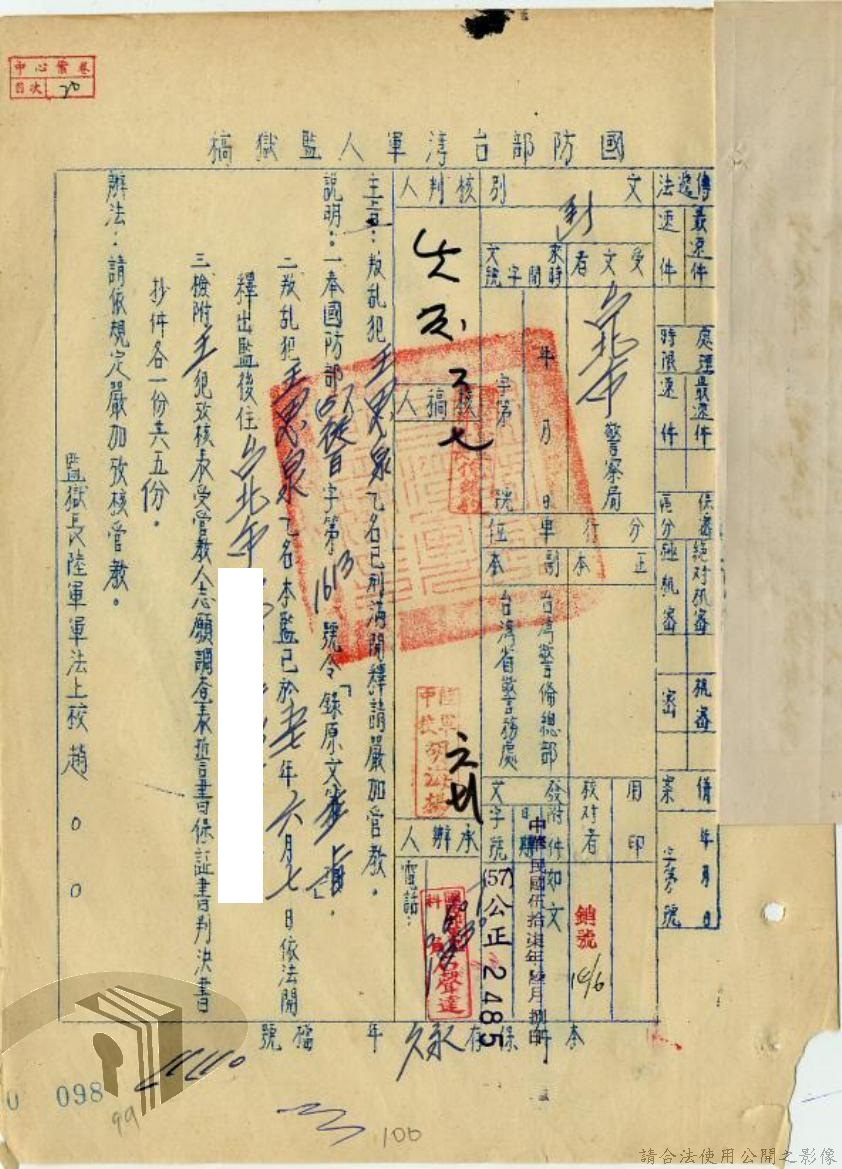 中心案卷
目次 20
國防部台灣軍人監獄稿
傳遞法
最速件
速件
處理時限
最速件
速件
保密區分
絕对机密
極机密
机密
密
備案
年月日
字第號
文別
函
受文者
台北市警察局
來文
時間
字號
年月日
字第號
分行單位
正本
副本
台灣警備總部
台灣省警務處
用印
校对者
銷號
10/6
發文
附件
如文
日期
中華民國伍拾柒年陸月捌日
字號
(57)公正2485
核判人
核稿人
承辦人
電話：
主旨：叛乱犯王思泉乙名已刑滿開釋請嚴加管教。
說明：一奉國防部字第1613號令「錄原文
二叛乱犯王思泉乙名本監已於年六月七日依法開
釋出監後住台北市
三檢附王犯攷核表受管教人志願調查表誓書保証書判決書
抄件各一份共五份。
辦法：請依規定嚴加攷核管教。
監獄長陸軍軍法上校趙００
本件保存永久
年
檔號
098
99
100
請合法使用公開之影像